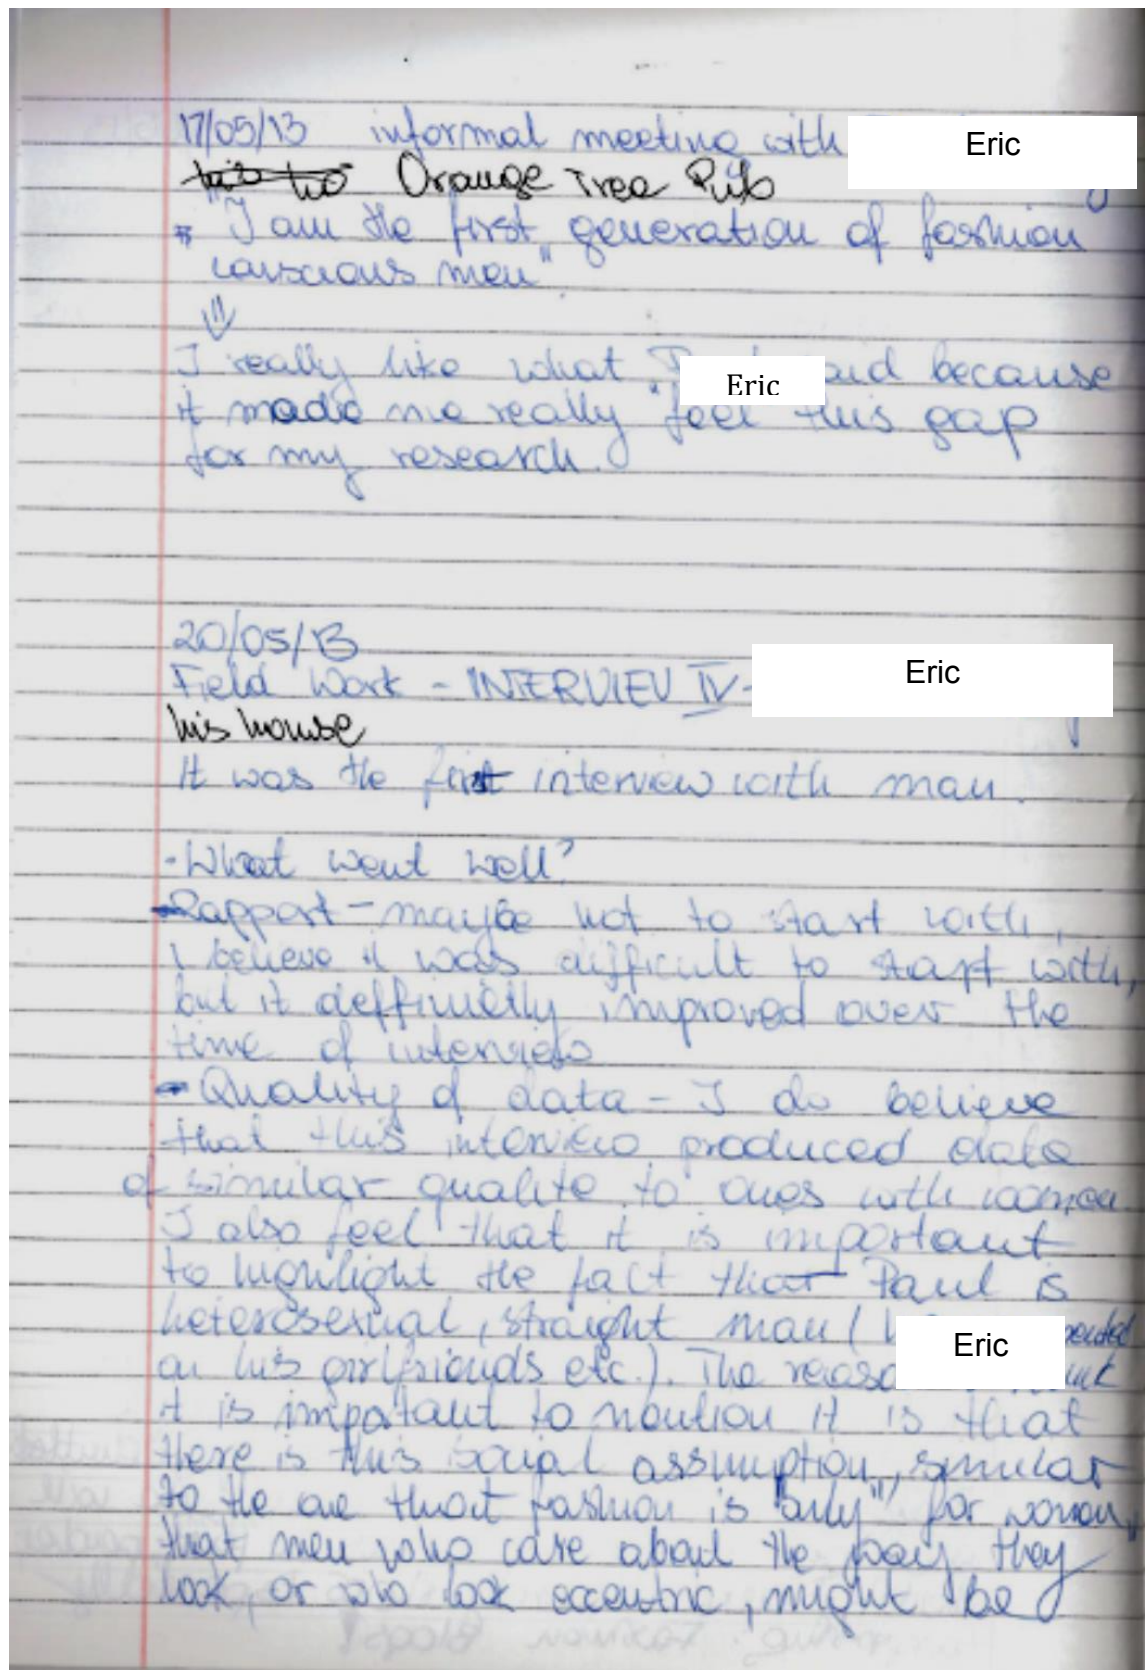 17/05/13 informal meeting with Eric
Orange Tree Pub
* "I am the first generation of fashion
conscious men"
I really like what Eric said because
it made me really "feel" this gap
for my research.
20/05/13
Field Work - INTERVIEW IV - Eric
his house
It was the first interview with man.
- What went well?
- Rapport - maybe not to start with,
I believe it was difficult to start with,
but it deffinietly improved over the
time of interview
- Quality of data - I do believe
that this interview produced data
of similar quality to ones with women
I also feel that it is important
to highlight the fact that Paul is
heterosexual, straight man ( Eric
on his girlfriends etc.). The
it is important to mention it is that
there is this social assumption, similar
to the one that fashion is "only" for women,
that men who care about the way they
look, or who look eccentric, might be